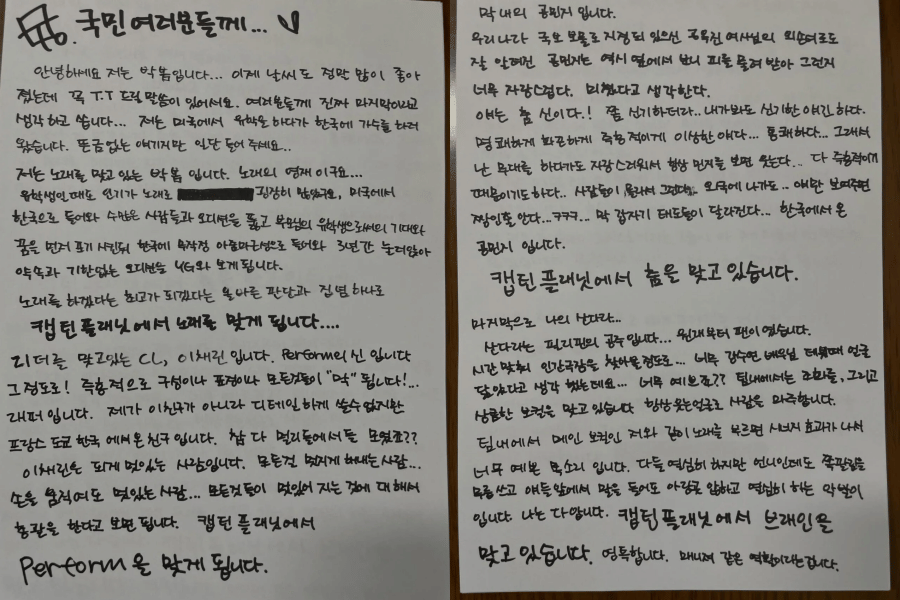 국민 여러분들께...
안녕하세요 저는 박봄입니다... 이제 날씨도 정말 많이 좋아
졌는데 꼭 T.T 드릴 말씀이 있어서요. 여러분들께 진짜 마지막이라고
생각하고 씁니다... 저는 미국에서 유학을 하다가 한국에 가수를 하러
왔습니다. 뜬금없는 얘기지만 일단 들어 주세요..
저는 노래를 맞고 있는 박봄 입니다. 노래의 영재 이구요...
유학생인때도 인기가 노래로 굉장히 많았구요, 미국에서
한국으로 들어와 수많은 사람들과 오디션을 뚫고 부모님의 유학생으로써의 기대와
꿈을 먼저 포기 시킨뒤 한국에 무작정 아줌마근성으로 들어와 3년간 눌러앉아
약속과 기한없는 오디션을 YG와 보게 됩니다.
노래를 하겠다는 최고가 되겠다는 올바른 판단과 집념 하나로
캡틴 플래닛에서 노래를 맞게 됩니다....
리더를 맞고있는 CL, 이채린 입니다. Perform의 신 입니다
그정도로! 즉흥적으로 구성이나 표정이나 모든것들이 "덕" 됩니다!...
래퍼 입니다. 제가 이친구가 아니라 디테일 하게 쓸수 없지만
프랑스 도쿄 한국 에서 온 친구 입니다. 참 다 멀리들에서들 모였죠??
이채린은 되게 멋있는 사람입니다. 모든걸 멋지게 해내는 사람...
손을 움직여도 멋있는 사람... 모든것들이 멋있어 지는 것에 대해서
총괄을 한다고 보면 됩니다. 캡틴 플래닛에서
Perform을 맞게 됩니다.
막내의 공민지 입니다.
우리나라 국보 보물로 지정되 있으신 공옥진 여사님의 외손녀로도
잘 알려진 공민지는 역시 옆에서 보니 피를 물려 받아 그런지
너무 자랑스럽다. 미쳤다고 생각한다.
얘는 춤 신이다! 쫌 신기하더라.. 내가봐도 신기한 애긴 하다.
명쾌하게 화끈하게 즉흥적이게 이상한 애다... 통쾌하다... 그래서
난 무대를 하다가도 자랑스러워서 항상 민지를 보면 웃는다... 다 즉흥적이기
때문이기도 하다.. 사람들이 몰라서 그런데.. 외국에 나가도.. 얘만 보여주면
짱인줄 안다...ㅋㅋㅋ... 막 갑자기 태도들이 달라진다... 한국에서 온
공민지 입니다.
캡틴 플래닛에서 춤을 맞고 있습니다.
마지막으로 나의 산다라..
산다라는 필리핀의 공주입니다... 원래부터 팬이였습니다.
시간 맞춰 인간극장을 찾아볼정도로... 너무 강수연 배우님 데뷔때 얼굴
닮았다고 생각 했는데요... 너무 예쁘죠?? 팀내에서는 조화를, 그리고
상큼한 보컬을 맞고 있습니다 항상 웃는얼굴로 사람을 마주합니다.
팀내에서 메인 보컬인 저와 같이 노래를 부르면 시너지 효과가 나서
너무 예쁜 목소리 입니다. 다들 열심히 하지만 언니인데도 쪽팔림을
무릅 쓰고 얘들앞에서 막말 들어도 아랑곳 않하고 열심히 하는 악벌이
입니다. 나는 다 압니다. 캡틴 플래닛에서 브레인을
맞고 있습니다. 영특합니다. 매니져 같은 역할이라는겁니다.